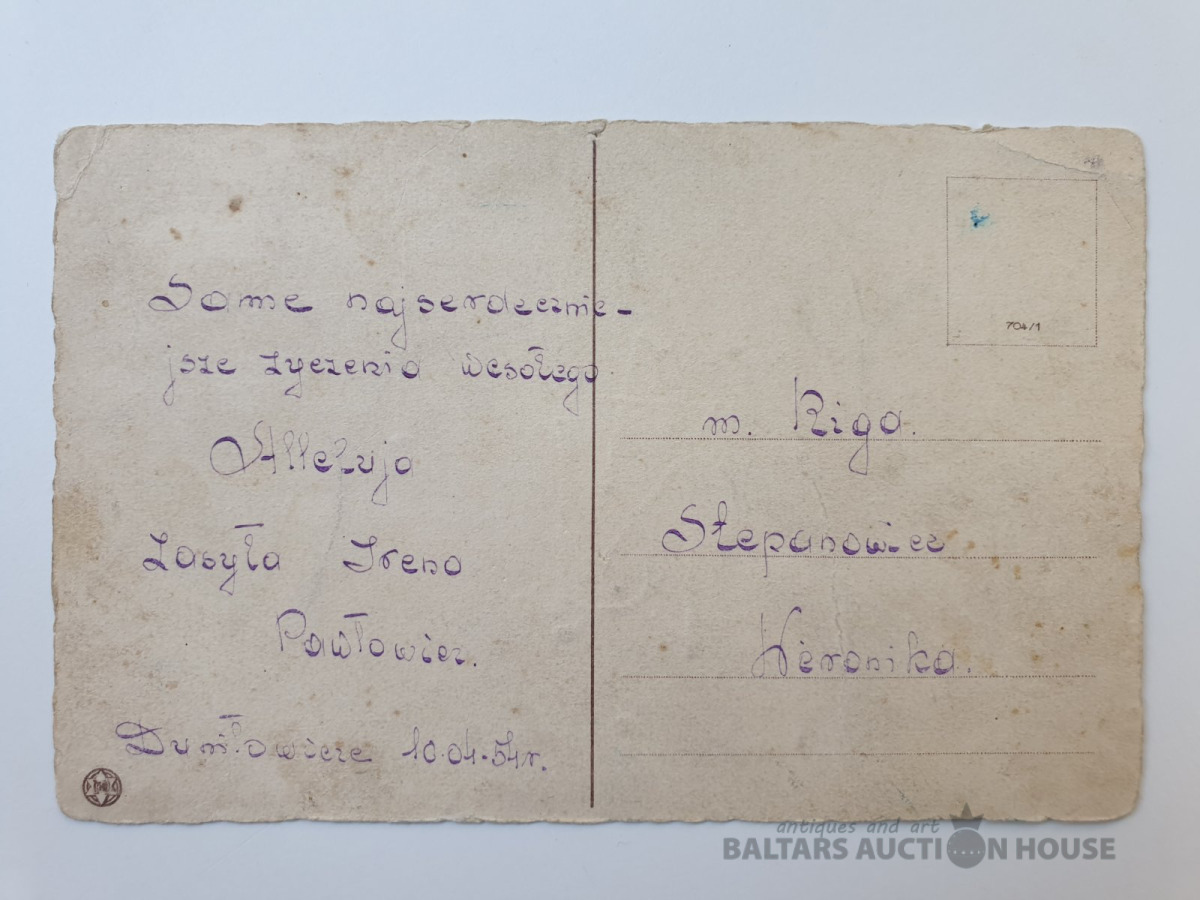 Same najserdecznie-
jsze życzenia wesołego
Alleluja
Zasyła Irena
Pawłowicz.
10.04.54r.
704/1
m. Riga.
Stepanowicz
Weronika.
antiques and art
BALTARS AUCTION HOUSE